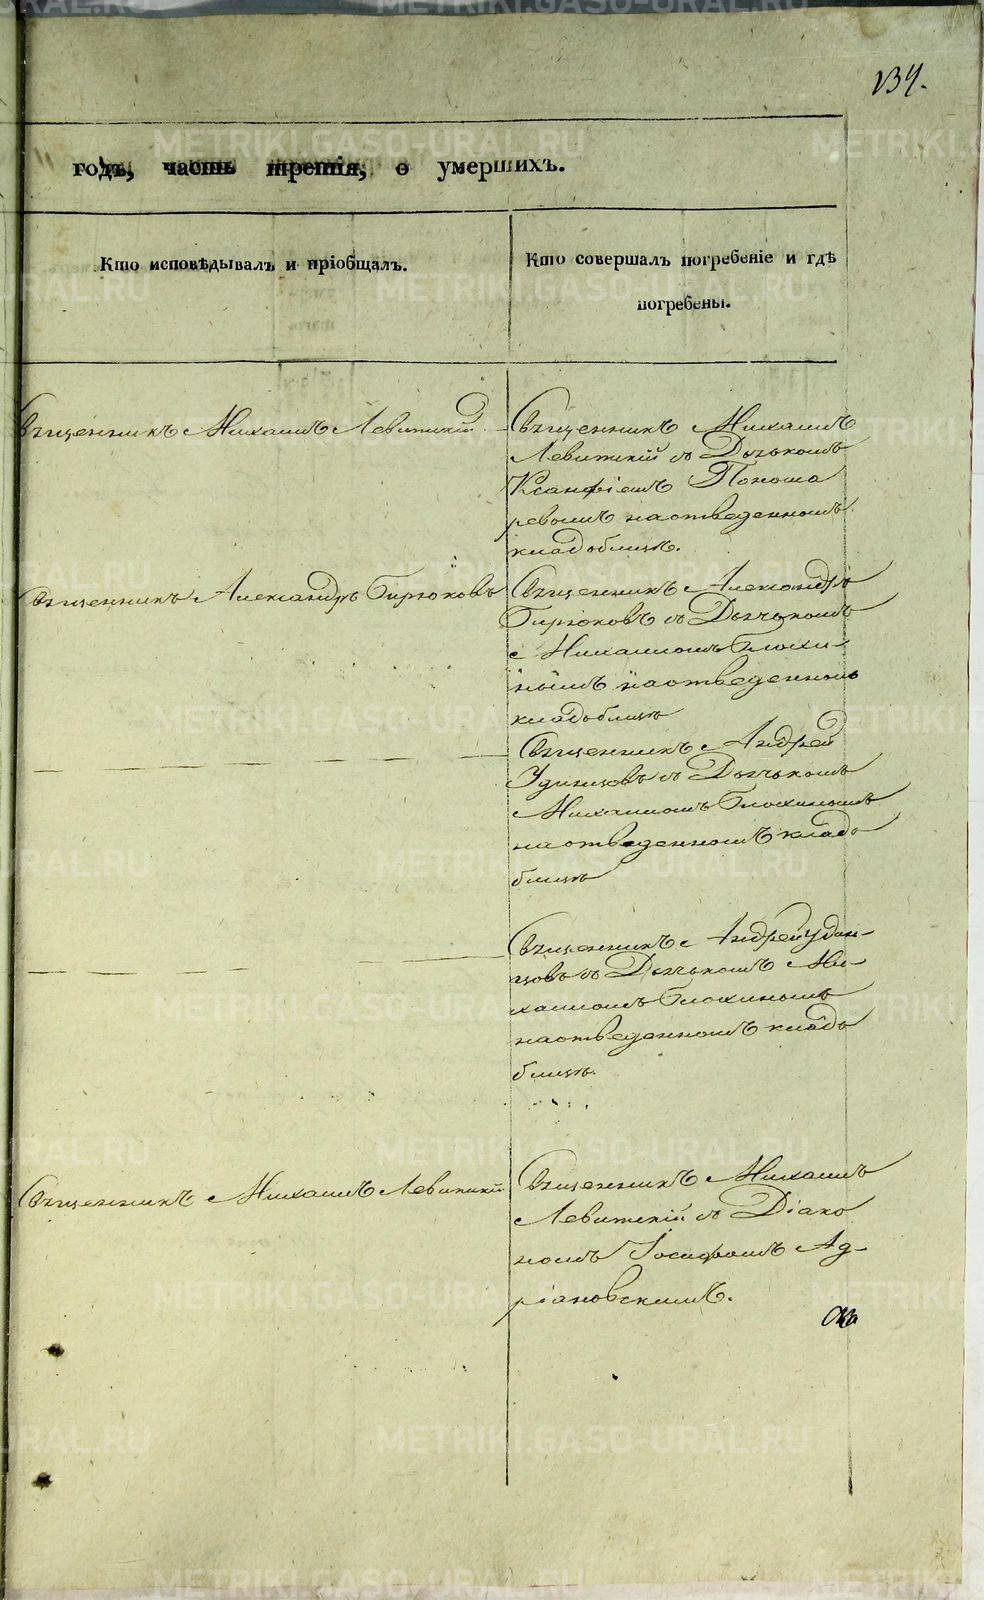 134.
годъ, часть третія, о умершихъ.
Кто исповѣдывалъ и пріобщалъ.
Кто совершалъ погребеніе и гдѣ
погребены.
Священникъ Михаилъ Левитскій
Священникъ Михаилъ
Левитскій съ Дьячкомъ
Ксанфіемъ Понома
ревымъ на отведенномъ
кладобищѣ.
Священникъ Александръ Бирюковъ
Священникъ Александръ
Бирюковъ съ Дьячькомъ
Михаиломъ Блохи-
нымъ на отведенномъ
кладобищѣ
Священникъ Андрей
Удинцовъ съ Дьячькомъ
Михаиломъ Блохинымъ
на отведенномъ кладо
бищѣ
Священникъ Андрей Удин-
цовъ съ Дьячькомъ Ми-
хаиломъ Блохинымъ
на отведенномъ кладо
бищѣ.
Священникъ Михаилъ Левитскій
Священникъ Михаилъ
Левитскій съ Діако
номъ Іосифомъ Ад-
ріановскимъ.
METRIKI.GASO-URAL.RU